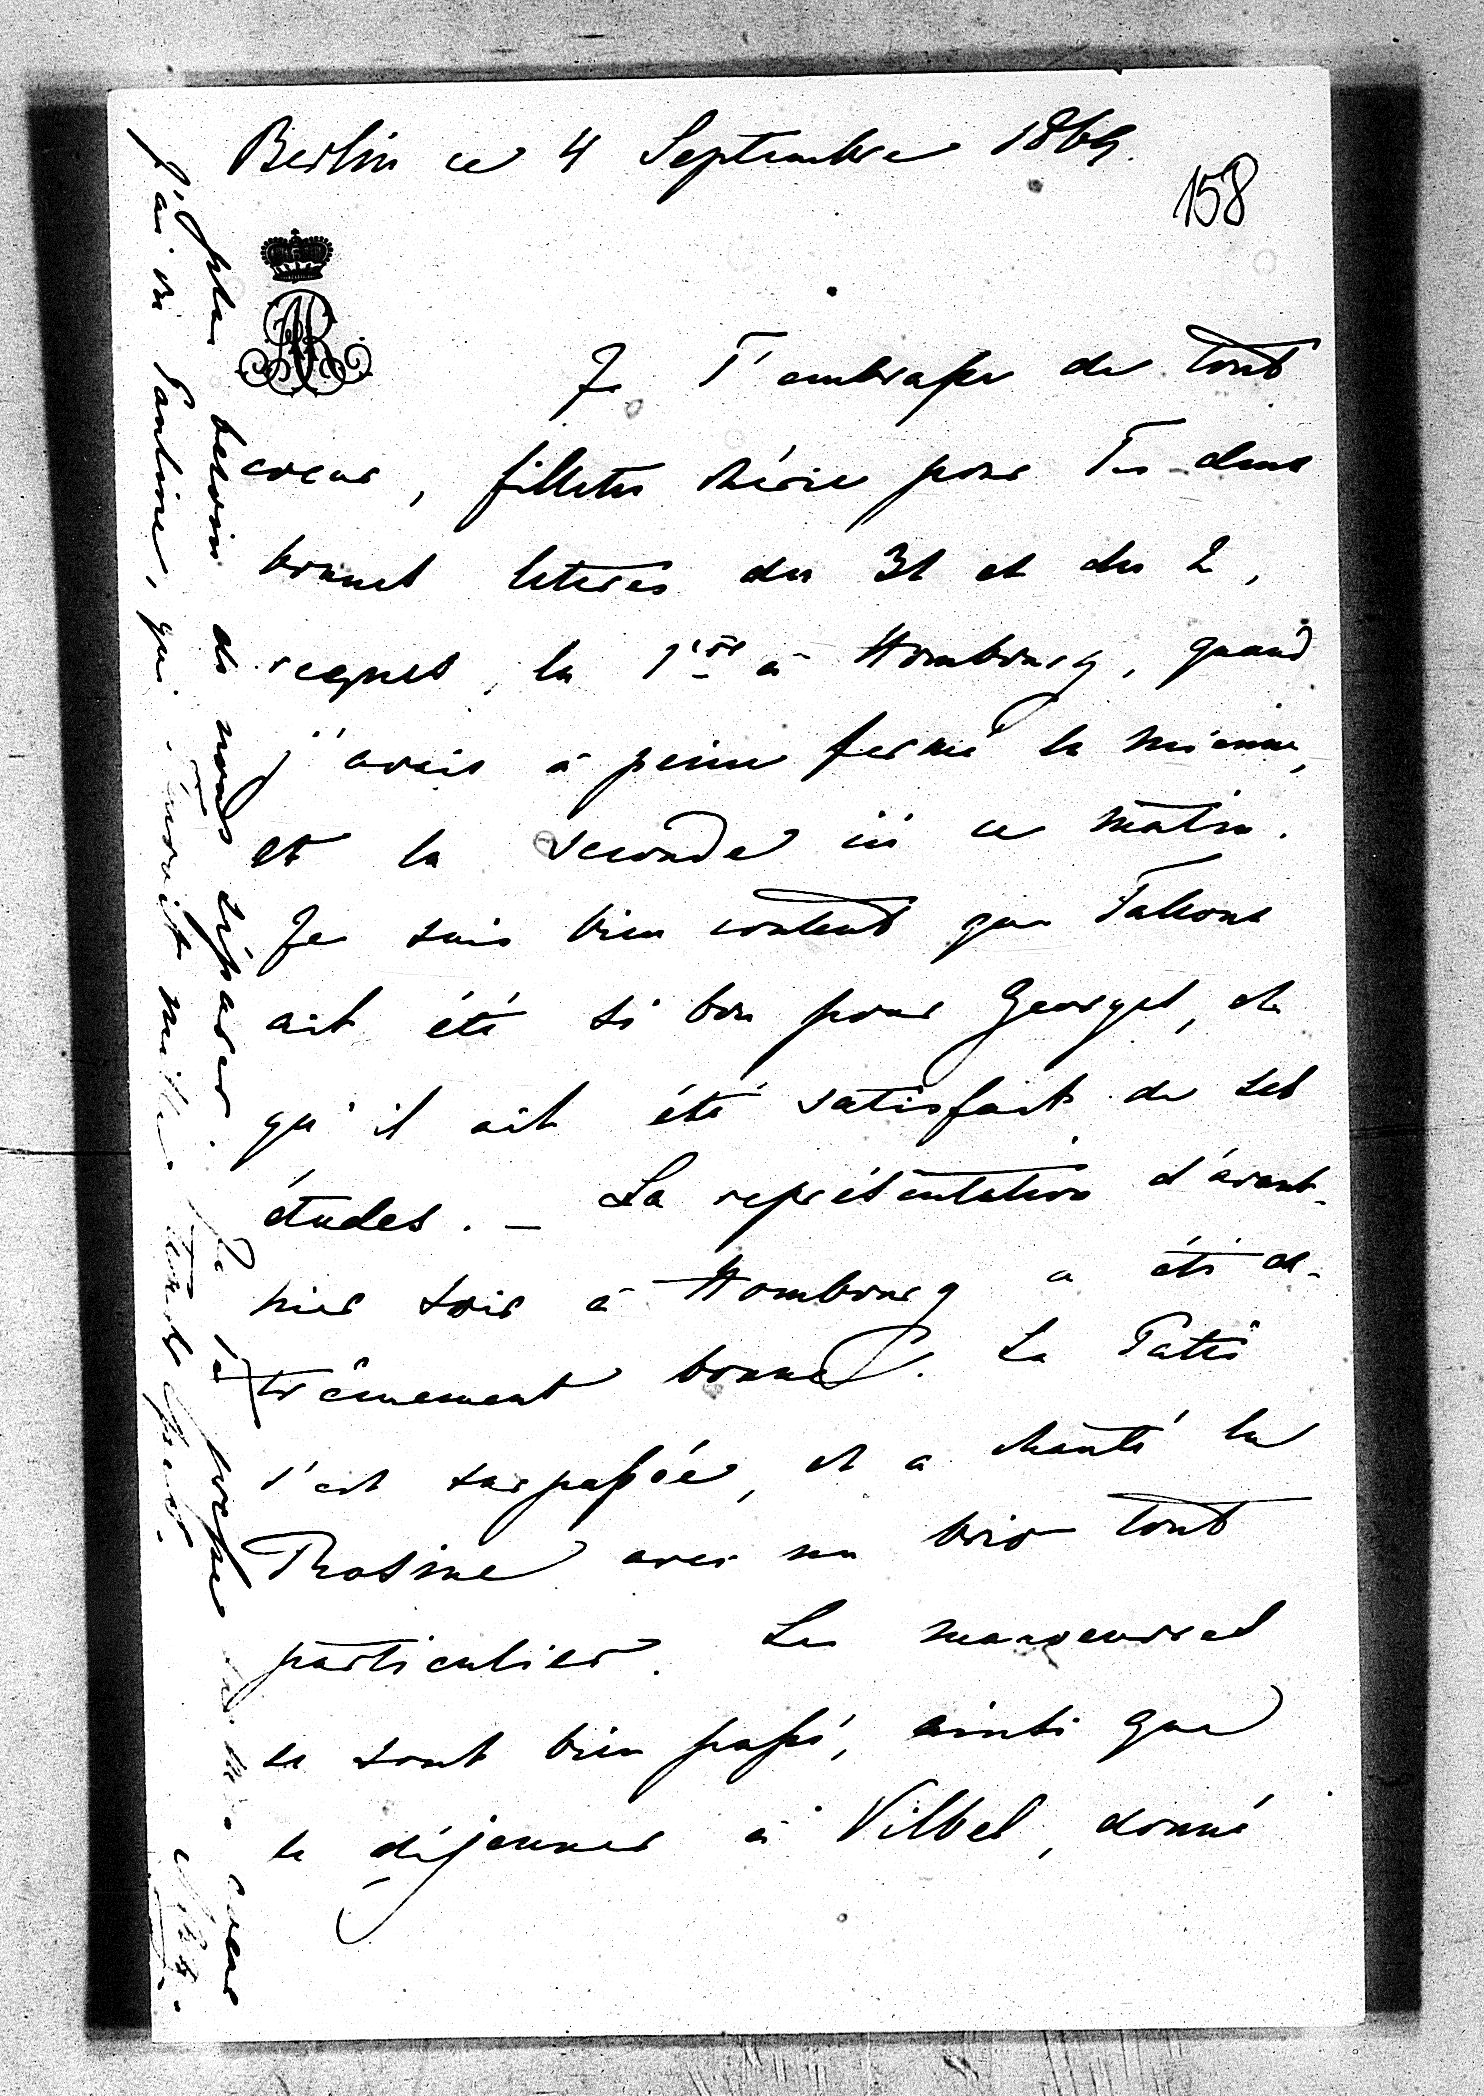 Berlin ce 4 Septembre 1869.
158
AR
Je T'embrasse de tout
coeur, fillette chérie pour Tes deux
bonnes lettres du 31 et du 2,
reçues, la 1ère à Hombourg, quand
j'avais à peine fermé la mienne,
et la seconde ici ce matin.
Je suis bien content que
ait été si bon pour Georges, et
qu'il ait été satisfait de ses
études. – La représentation d'avant-
hier soir à Hombourg a été ex-
trêmement bonne. La Patti
s'est surpassée, et a chanté la
Rosine avec un brio tout
particulier. Les manoeuvres
se sont bien passé, ainsi que
le déjeuner à Vilbel, donné
plus besoin de nous séparer. Je Te presse sur mon coeur
J'ai vu Pauline, qui T'envoit mille